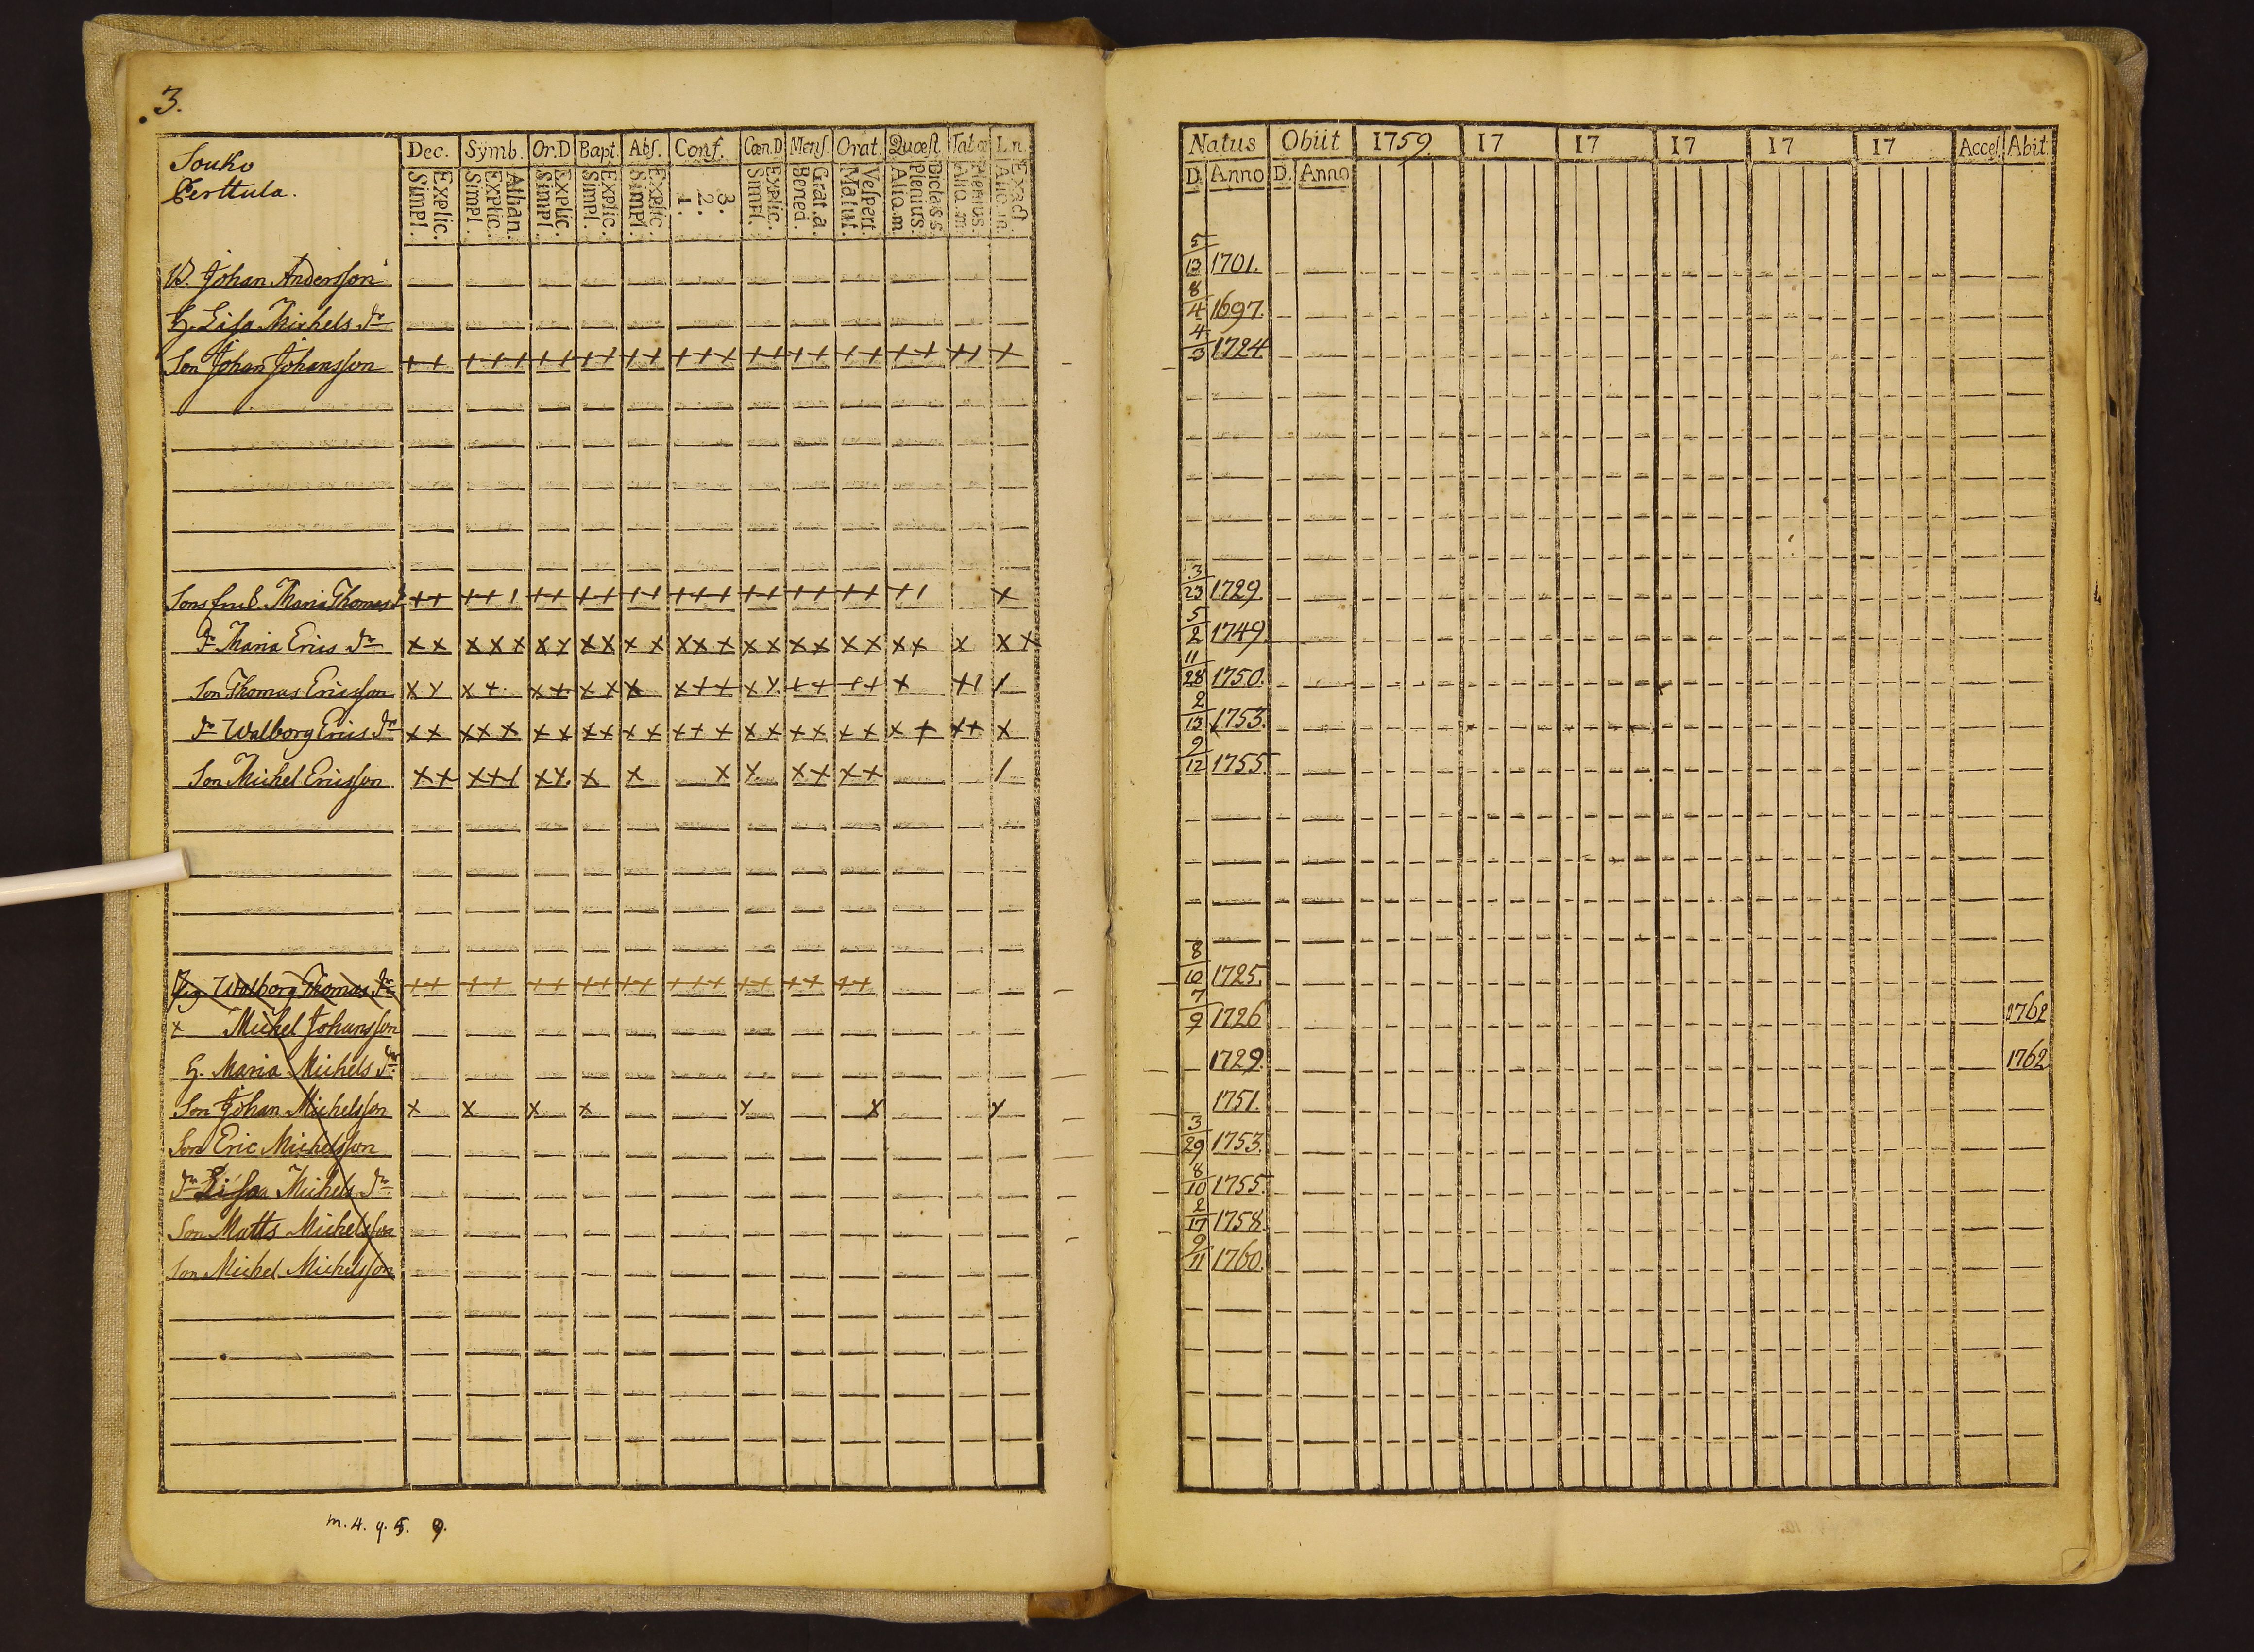 3.
Souko
Perttula.
Dec. Symb. Or.D Bapt. Abs. Conf. Cœn.D Mens. Orat. Quæst. Tabæ L.n.
Simpl. Explic. Simpl. Explic. Athan. Simpl. Explic. Simpl. Explic. Simpl. Explic. 1. 2. 3. Simpl. Explic. Bened. Grat.a. Matut. Vespert. Aliq.m. Plenius. Dictass. Aliq.m Plenius. Aliq.m. Exact
W. Johan Andersson
H. Lisa Michels dr
Son Johan Johansson ++ +++ ++ ++ ++ +++ ++ ++ ++ ++ ++ +
Maria Thomas dr ++ ++ı ++ ++ ++ +++ ++ ++ ++ +ı x
dr Maria Erics dr xx xxx xx xx xx xxx xx xx xx xx x xx
Son Thomas Ericsson xx x+ x+ xx x x++ xx ++ ++ x +ı /
dr Walborg Erics dr xx xxx xx xx xx xxx xx xx xx x+ xx x
Son Michel Ericsson xx xx/ xx x x x x xx xx /
Walborg Thomas dr ++ ++ ++ ++ ++ +++ ++ ++ ++
x Michel Johansson
H. Maria Michels dr
Son Johan Michelsson x x x x x x x
Son Eric Michelsson
dr Lisa Michels dr
Son Matts Michelsson
Son Michel Michelsson
m. 4. q. 5. 9.
Natus Obiit 1759 17 17 17 17 17 Acces. Abit.
D. Anno D. Anno
5/13 1701.
8/4 1697.
4/3 1724
3/23 1729.
5/2 1749
11/28 1750.
2/13 1753.
9/12 1755.
8/10 1725.
7/9 1726 1762
1729. 1762
1751.
3/29 1753.
8/10 1755.
2/17 1758.
9/11 1760.